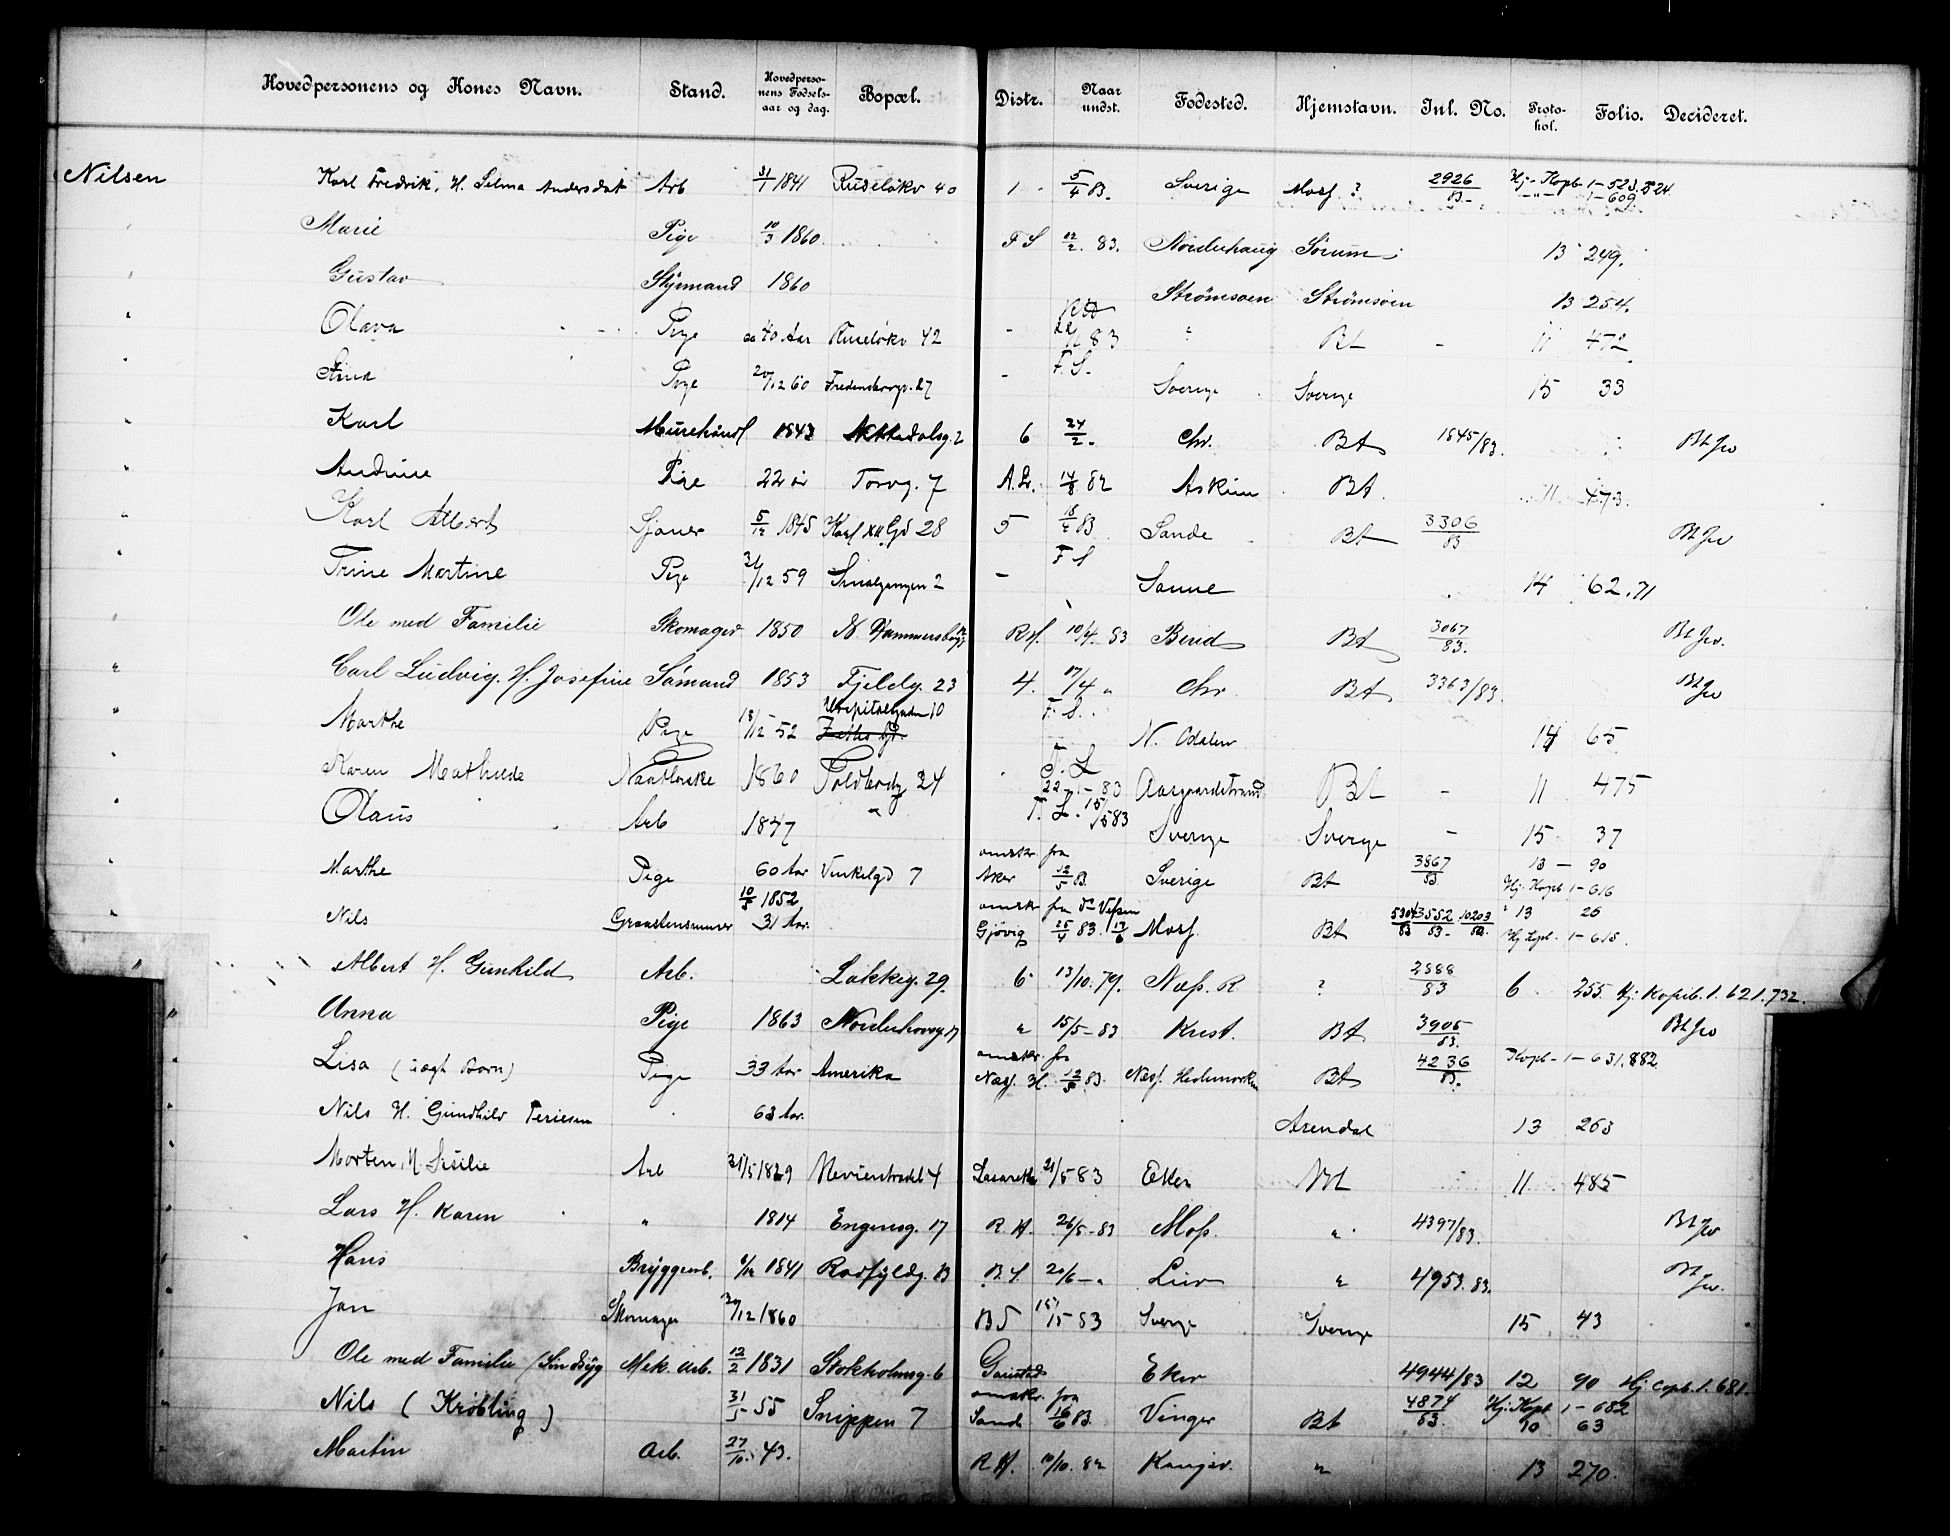 Hovedpersonens og Kones Navn. Stand. Hovedpersonens Fødselsaar og dag. Bopæl. Distr. Naar undst. Fødested. Hjemstavn. Inl. No. Protokol. Folio. Decideret.
Nilsen Karl Fredrik, H. Selma Andersdat Arb 31/1 1841 Ruseløkv 40 1 5/4 83. Sverige Moss ? 2926/83. Hj. Kopb 1-523. 524 1-609
" Marie Pige 10/3 1860. F S 12/2. 83. Norderhaug Sørum 13 249.
" Gustav Styrmand 1860 Strømsøen Strømsøen 13 254.
" Olava Pige ca 40 Aar Ruseløkv 42 - 83 " Bt - 11 472
" Pige 20/12 60 Fredensborgv. 27 - F. S. Sverige Sverige 15 33
" Karl Murehaandl 1843 Nittedalsg. 2 6 24/2. Chr. Bt 1845/83. Bt Jev
" Andrine Pige 22 år Torvg. 7 14/8 82 Askim Bt 11 473.
" Karl Albert Sjauer 5/12 1845 Karl XII Gd 28 5 18/4 83 Sande Bt 3306/83 Bt Jev
" Trine Martine Pige 31/12 59 Smalgangen 2 - F S Sanne 14 62.71
" Ole med Familie Skomager 1850 N. Hammersborg R H. 10/4 83 Bt 3067/83. Bt Jev.
" Carl Ludvig. H. Josefine Sømand 1853 Fjeldg. 23 4. 17/4 " Chr. Bt 3363/83. Bt Jev
" Marthe Pige 18/12 52 Hospitalgaden 10 F. S. N. Odalen 14 65
" Karen Mathilde 1860 Toldbodg 24 22-1-83 Aasgaardstrand Bt - 11 475
" Olaus Arb 1847 " 15/5 83 Sverige Sverige - 15 37
" Marthe Pige 60 Aar Vinkelgd 7 omskr. fra Aker 12/5 83. Sverige Bt 3867/83 13 - 90 Hj. Kopb 1-616
" Nils Graastensmurer 10/5 1852 31 Aar. omskr. fra Gjøvig 25/4 83. Moss. Bt 3552/83. 10203/82. " 13 26 Hj. Kopb. 1-615.
Albert H. Gunhild Arb. Lakkeg. 29. 6 13/10. 79. Næss. R ? 2888/83 6 255. Hj: Kopib. 1. 621. 732.
" Anna Pige 1863 Norderhovsg. 17 " 15/5-83 Krist. Bt 3905/83. Bt Jev
" Lisa (uægt Barn) Pige 33 Aar Amerika omskr. fra Næss. H. 12/5 83. Næss. Hedemarken Bt 4236/83. Kopb - 1-631.882
" Nils H. Gundhild Teriesen 63 Aar. Arendal 13 263
" Morten, H. Arb 21/5 83 Eker Bt 11 485
" Lars H. Karen " 1814 Engensg. 17 R. H. 26/5-83 Moss. " 4397/83. Bt Jev
" Hans Bryggearb. 6/12 1841 Rodfyldg. 13 B. S. 20/6 - " Lier " 4953. 83. Bt Jev.
" Jan Skomager 1860 B S 83 Sverige Sverige 15 43
" Ole med Familie (Sindsyg Mek. Arb. 12/2 1831 Stokholmsg. 6 Gaustad Eker 4944/83 12 90 Hj. Copb. 1. 681.
" Nils (Krøbling) 31/5 55 Snippen 7 omskr. fra Sand 16/6 83. Vinger Bt 4874/83. Hj: Kopb 1-682 10 63
" Martin Arb. 27/10. 43. R H. 10/10. 82 " 13 270.